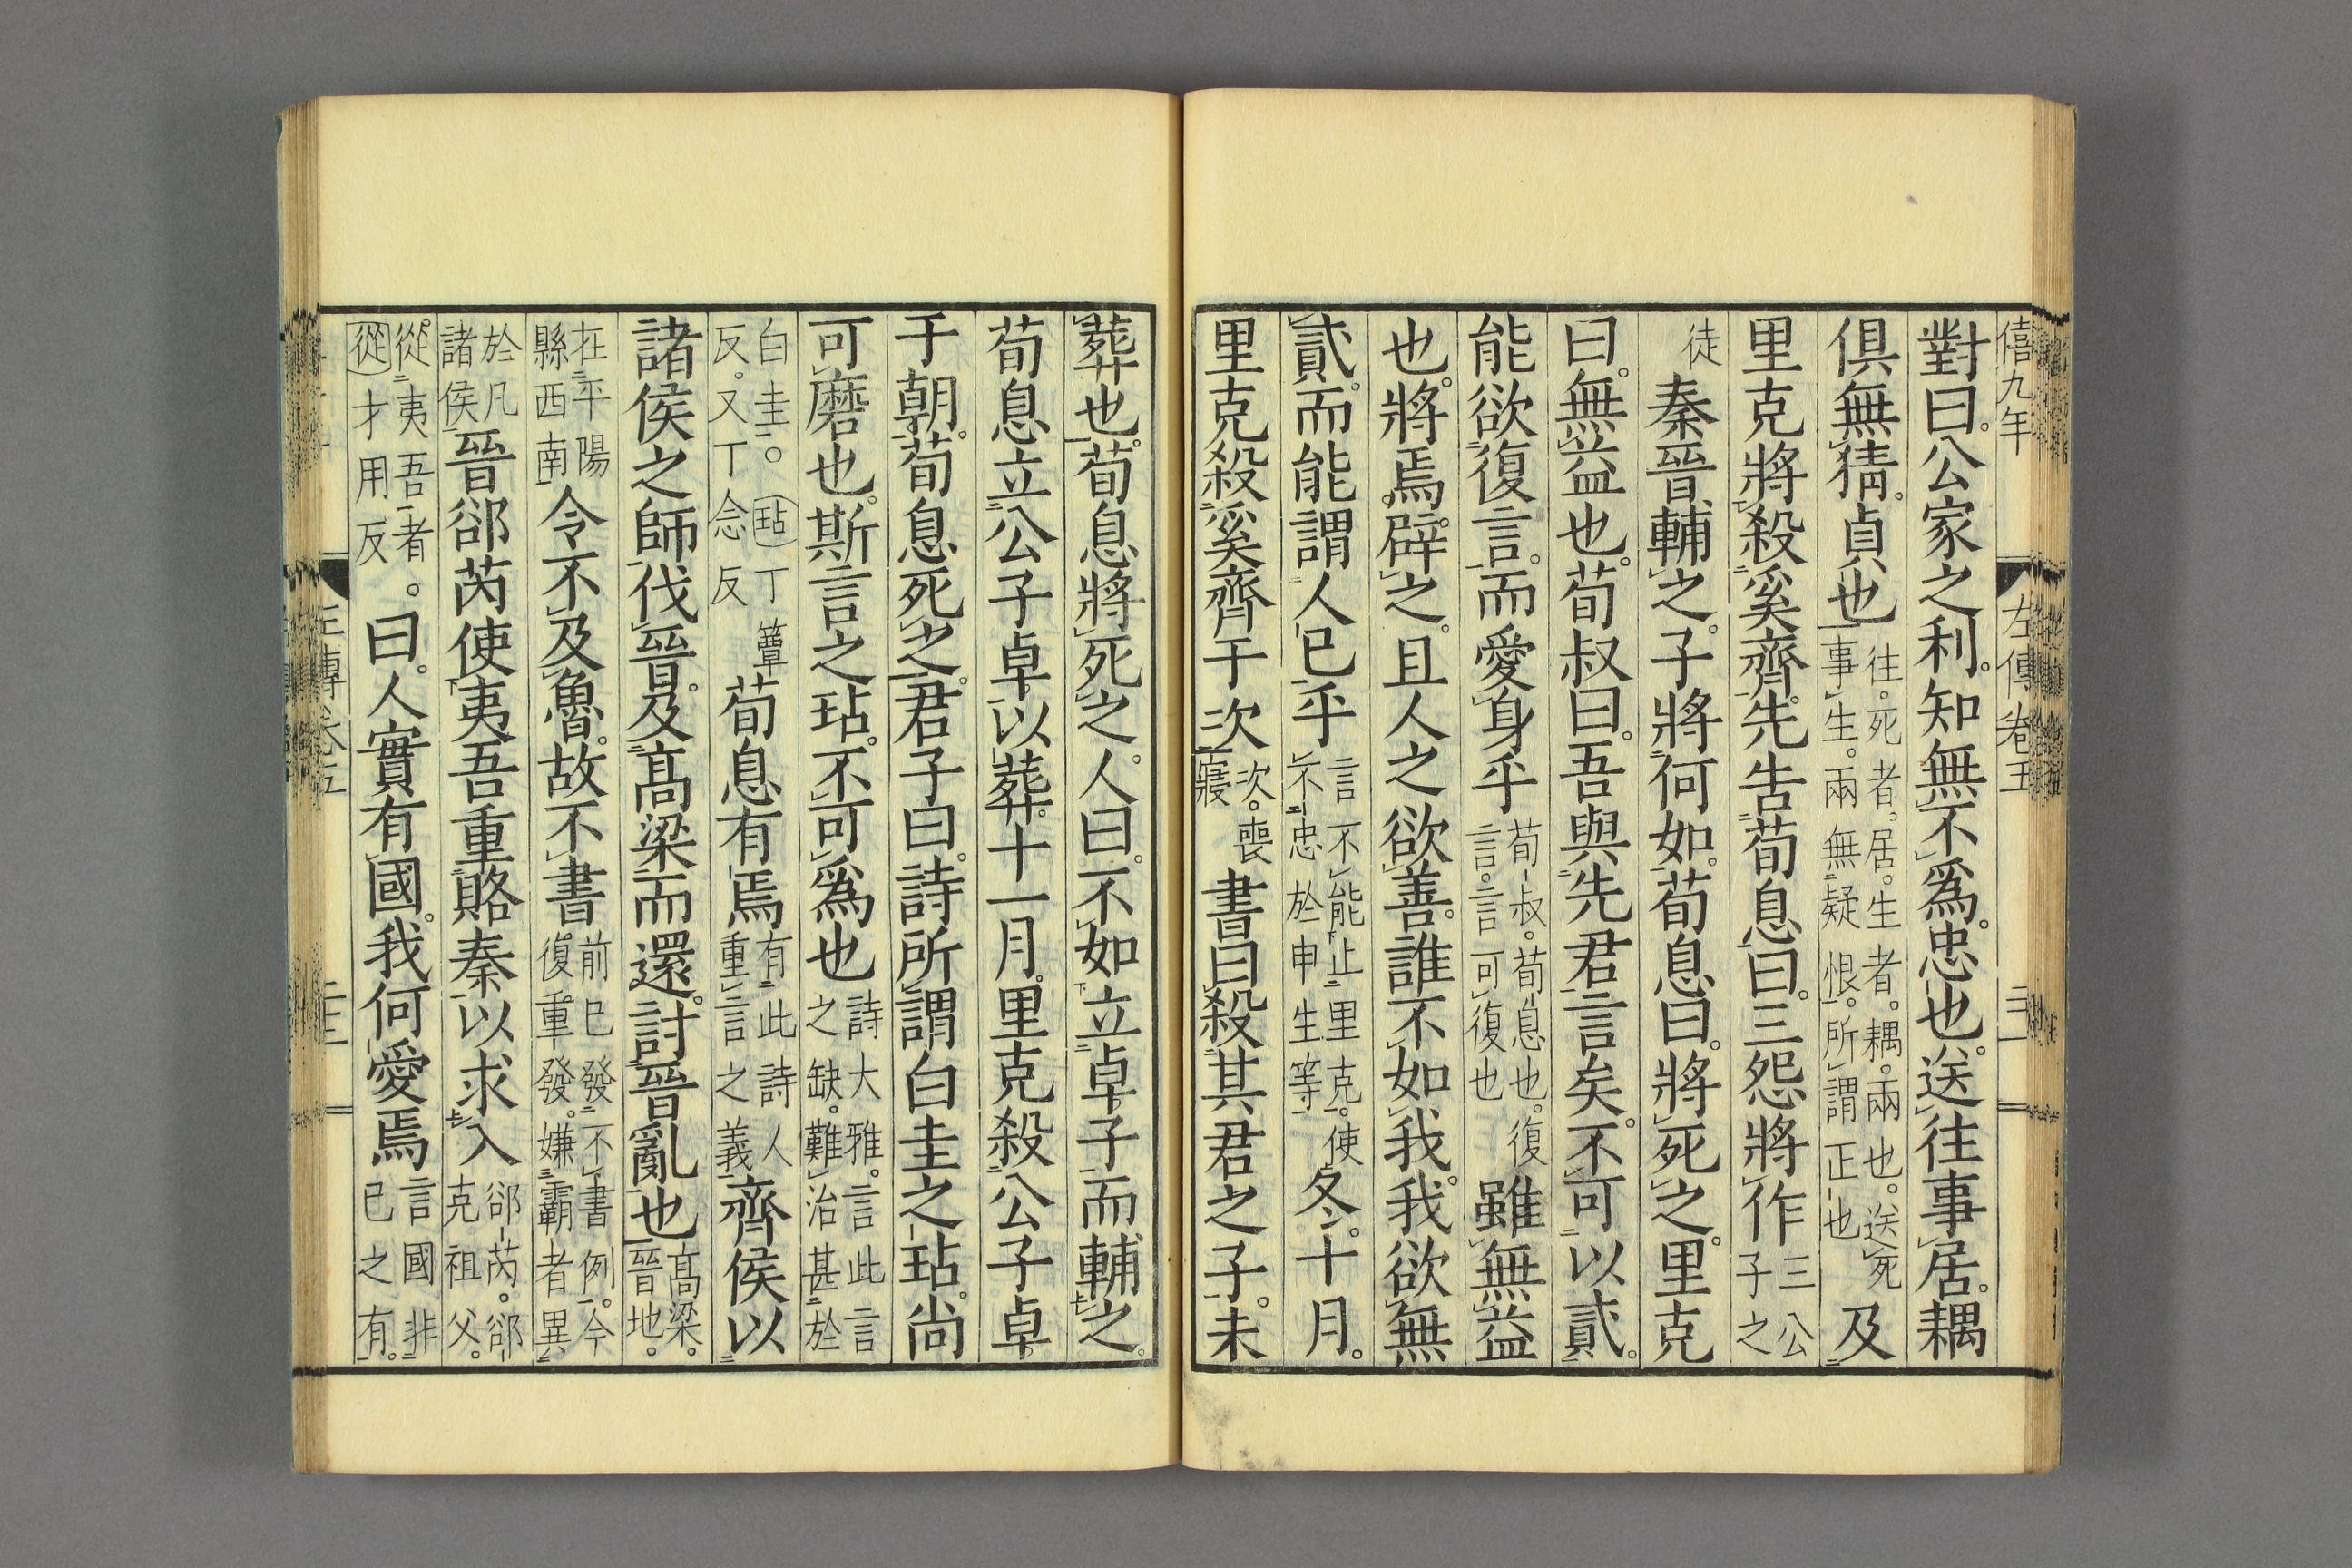 僖九年
左傳卷五
對曰。公家之利。知無不爲。忠也。送往事居。耦
俱無猜。貞也往。死者。居。生者。耦。兩也。送死事生。兩無疑恨。所謂正也及
里克將殺奚齊。先告荀息曰。三怨將作三公子之
徒秦晉輔之。子將何如。荀息曰。將死之。里克
曰。無益也。荀叔曰。吾與先君言矣。不可以貳。
能欲復言。而愛身乎荀叔。荀息也。復言。言可復也雖無益
也。將焉辟之。且人之欲善。誰不如我。我欲無
貳。而能謂人已乎言不能止里克。使不忠於申生等冬。十月。
里克殺奚齊于次次。喪寢書曰殺其君之子。未
葬也。荀息將死之。人曰。不如立卓子而輔之。
荀息立公子卓。以葬。十一月。里克殺公子卓
于朝。荀息死之。君子曰。詩所謂白圭之玷。尚
可磨也。斯言之玷。不可爲也詩大雅。言此言之缺。難治甚於
白圭。玷丁簟反。又丁念反荀息有焉有此詩人重言之義齊侯以
諸侯之師伐晉。及高梁而還。討晉亂也高梁。晉地。
在平陽縣西南令不及魯。故不書前已發不書例。今復重發。嫌霸者異
於凡諸侯晉郤芮使夷吾重賂秦以求入郤芮。郤克祖父。
從夷吾者。從才用反。曰。人實有國。我何愛焉言國非已之有。